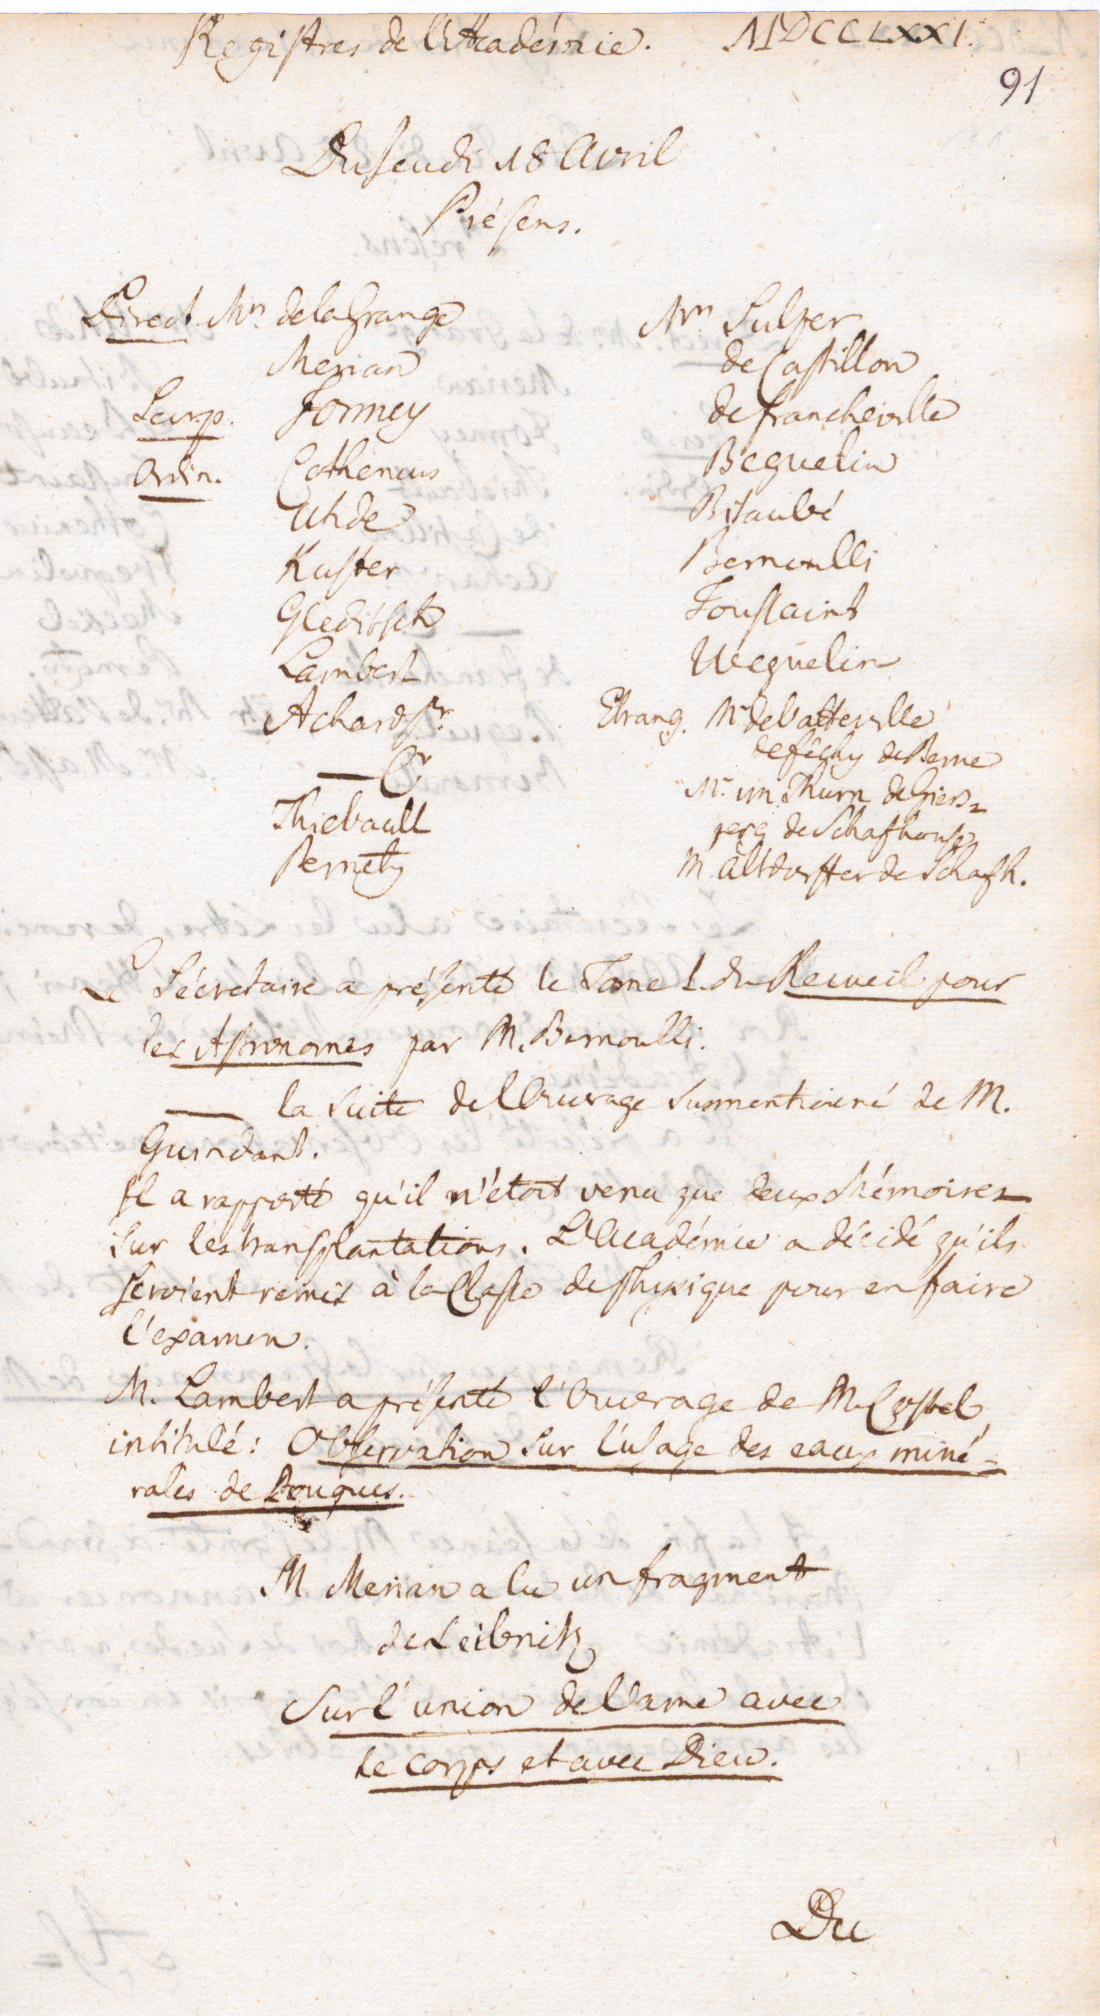 Registres de l'Académie. MDCCLXXI.
91
Du Jeudi 18 Avril
Présens.
Direct. Mrs. de la Grange
Merian
Secrp. Formey
Ordin. Cothenius
Uhde
Kuster
Gleditsch
Lambert
Achard Sr
— Cr
Thiebault
Pernety
Mrs Sulzer
de Castillon
de Francheville
Beguelin
Bitaubé
Bernoulli
Toussaint
Weguelin
Etrang. Mr de Vatteville
de Berne
Mr. im Thurn de Giers=
perg de Schafhouse
M. Altdorffer de Schafh.
Le Sécretaire a présenté le Tome I. du Recueil pour
les Astronomes par M. Bernoulli.
— la suite de l'Ouvrage susmentionné de M.
Guindant.
Il a rapporté qu'il n'étoit venu que deux Mémoires
sur les transplantations. L'Académie a décidé qu'ils
seroient remis à la Classe de Physique pour en faire
l'examen.
M. Lambert a présenté l'Ouvrage de M. Costel,
intitulé: Observation sur l'usage des eaux miné=
rales de Pougues.
M. Merian a lu un fragment
de Leibnitz
Sur l'union de l'ame avec
le corps et avec Dieu.
Du